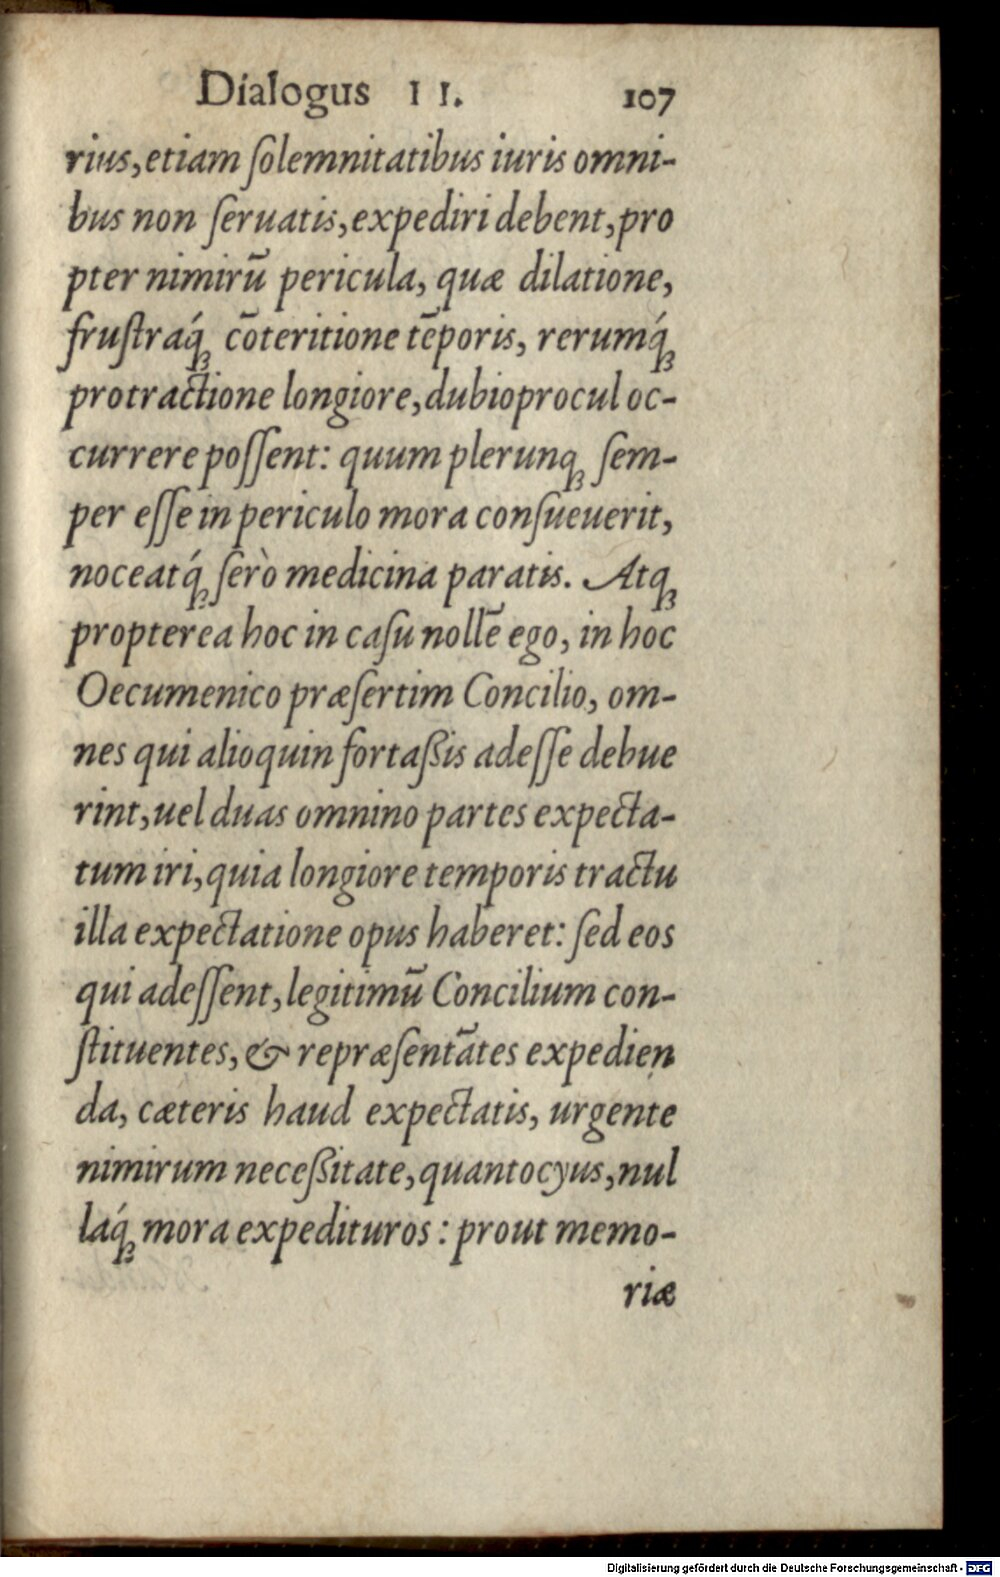 Dialogus II. 107
rius, etiam ſolemnitatibus iuris omni-
bus non ſeruatis, expediri debent, pro
pter nimirū pericula, quæ dilatione,
fruſtraq́; cōteritione tēporis, rerumq́;
protractione longiore, dubioprocul oc-
currere poſſent: quum plerunq; ſem-
per eſſe in periculo mora conſueuerit,
noceatq́; ſerò medicina paratis. Atq;
propterea hoc in caſu nollē ego, in hoc
Oecumenico præſertim Concilio, om-
nes qui alioquin fortaßis adeſſe debue
rint, uel duas omnino partes expecta-
tum iri, quia longiore temporis tractu
illa expectatione opus haberet: ſed eos
qui adeſſent, legitimū Concilium con-
ſtituentes, & repræſentātes expedien
da, cæteris haud expectatis, urgente
nimirum neceßitate, quantocyus, nul
laq́; mora expedituros: prout memo-
riæ
Digitalisierung gefördert durch die Deutsche Forschungsgemeinschaft - DFG